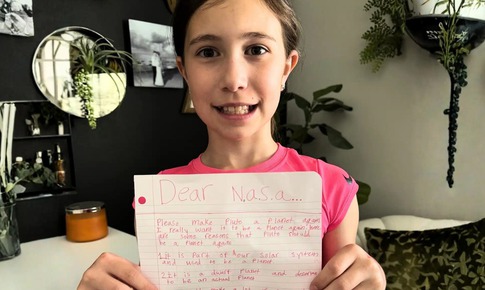 Dear N.a.s.a...
Please make Pluto a Planet again
I really want it to be a Planet again here
are some reasons that Pluto should
be a Planet again
1. It is Part of our Solar System
and used to be a Planet
2. It is a dwarf Planet and deserves
to be an actual Planet